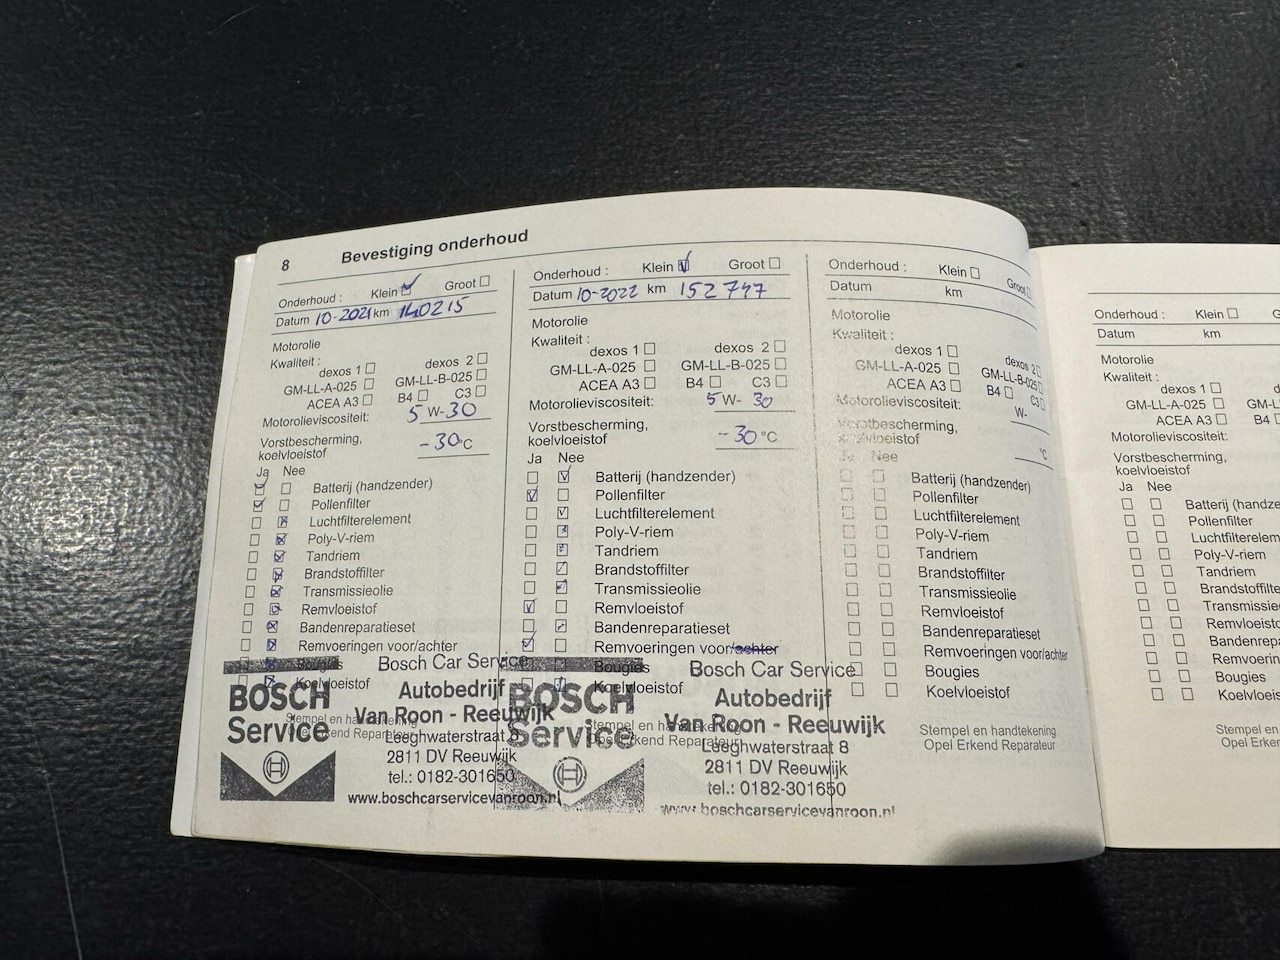 8 Bevestiging onderhoud
Onderhoud : Klein Groot
Datum 10-2021 km 140215
Motorolie
Kwaliteit :
dexos 1 dexos 2
GM-LL-A-025 GM-LL-B-025
ACEA A3 B4 C3
Motorolieviscositeit: 5 W- 30
Vorstbescherming,
koelvloeistof -30 °C
Ja Nee
Batterij (handzender)
Pollenfilter
Luchtfilterelement
Poly-V-riem
Tandriem
Brandstoffilter
Transmissieolie
Remvloeistof
Bandenreparatieset
Remvoeringen voor/achter
Bougies
Koelvloeistof
Stempel en handtekening
Opel Erkend Reparateur
BOSCH
Service
Bosch Car Service
Autobedrijf
Van Roon - Reeuwijk
Leeghwaterstraat 8
2811 DV Reeuwijk
tel.: 0182-301650
www.boschcarservicevanroon.nl
Onderhoud : Klein Groot
Datum 10-2022 km 152747
Motorolie
Kwaliteit :
dexos 1 dexos 2
GM-LL-A-025 GM-LL-B-025
ACEA A3 B4 C3
Motorolieviscositeit: 5 W- 30
Vorstbescherming,
koelvloeistof -30 °C
Ja Nee
Batterij (handzender)
Pollenfilter
Luchtfilterelement
Poly-V-riem
Tandriem
Brandstoffilter
Transmissieolie
Remvloeistof
Bandenreparatieset
Remvoeringen voor/achter
Bougies
Koelvloeistof
Stempel en handtekening
Opel Erkend Reparateur
BOSCH
Service
Bosch Car Service
Autobedrijf
Van Roon - Reeuwijk
Leeghwaterstraat 8
2811 DV Reeuwijk
tel.: 0182-301650
www.boschcarservicevanroon.nl
Onderhoud : Klein Groot
Datum km
Motorolie
Kwaliteit :
dexos 1 dexos 2
GM-LL-A-025 GM-LL-B-025
ACEA A3 B4 C3
Motorolieviscositeit: W-
Vorstbescherming,
koelvloeistof °C
Ja Nee
Batterij (handzender)
Pollenfilter
Luchtfilterelement
Poly-V-riem
Tandriem
Brandstoffilter
Transmissieolie
Remvloeistof
Bandenreparatieset
Remvoeringen voor/achter
Bougies
Koelvloeistof
Stempel en handtekening
Opel Erkend Reparateur
Onderhoud : Klein G
Datum km
Motorolie
Kwaliteit :
dexos 1
GM-LL-A-025 GM-L
ACEA A3 B4
Motorolieviscositeit:
Vorstbescherming,
koelvloeistof
Ja Nee
Batterij (handze
Pollenfilter
Luchtfilterelem
Poly-V-riem
Tandriem
Brandstoffilte
Transmissie
Remvloeisto
Bandenrepa
Remvoerin
Bougies
Koelvloeis
Stempel en
Opel Erken